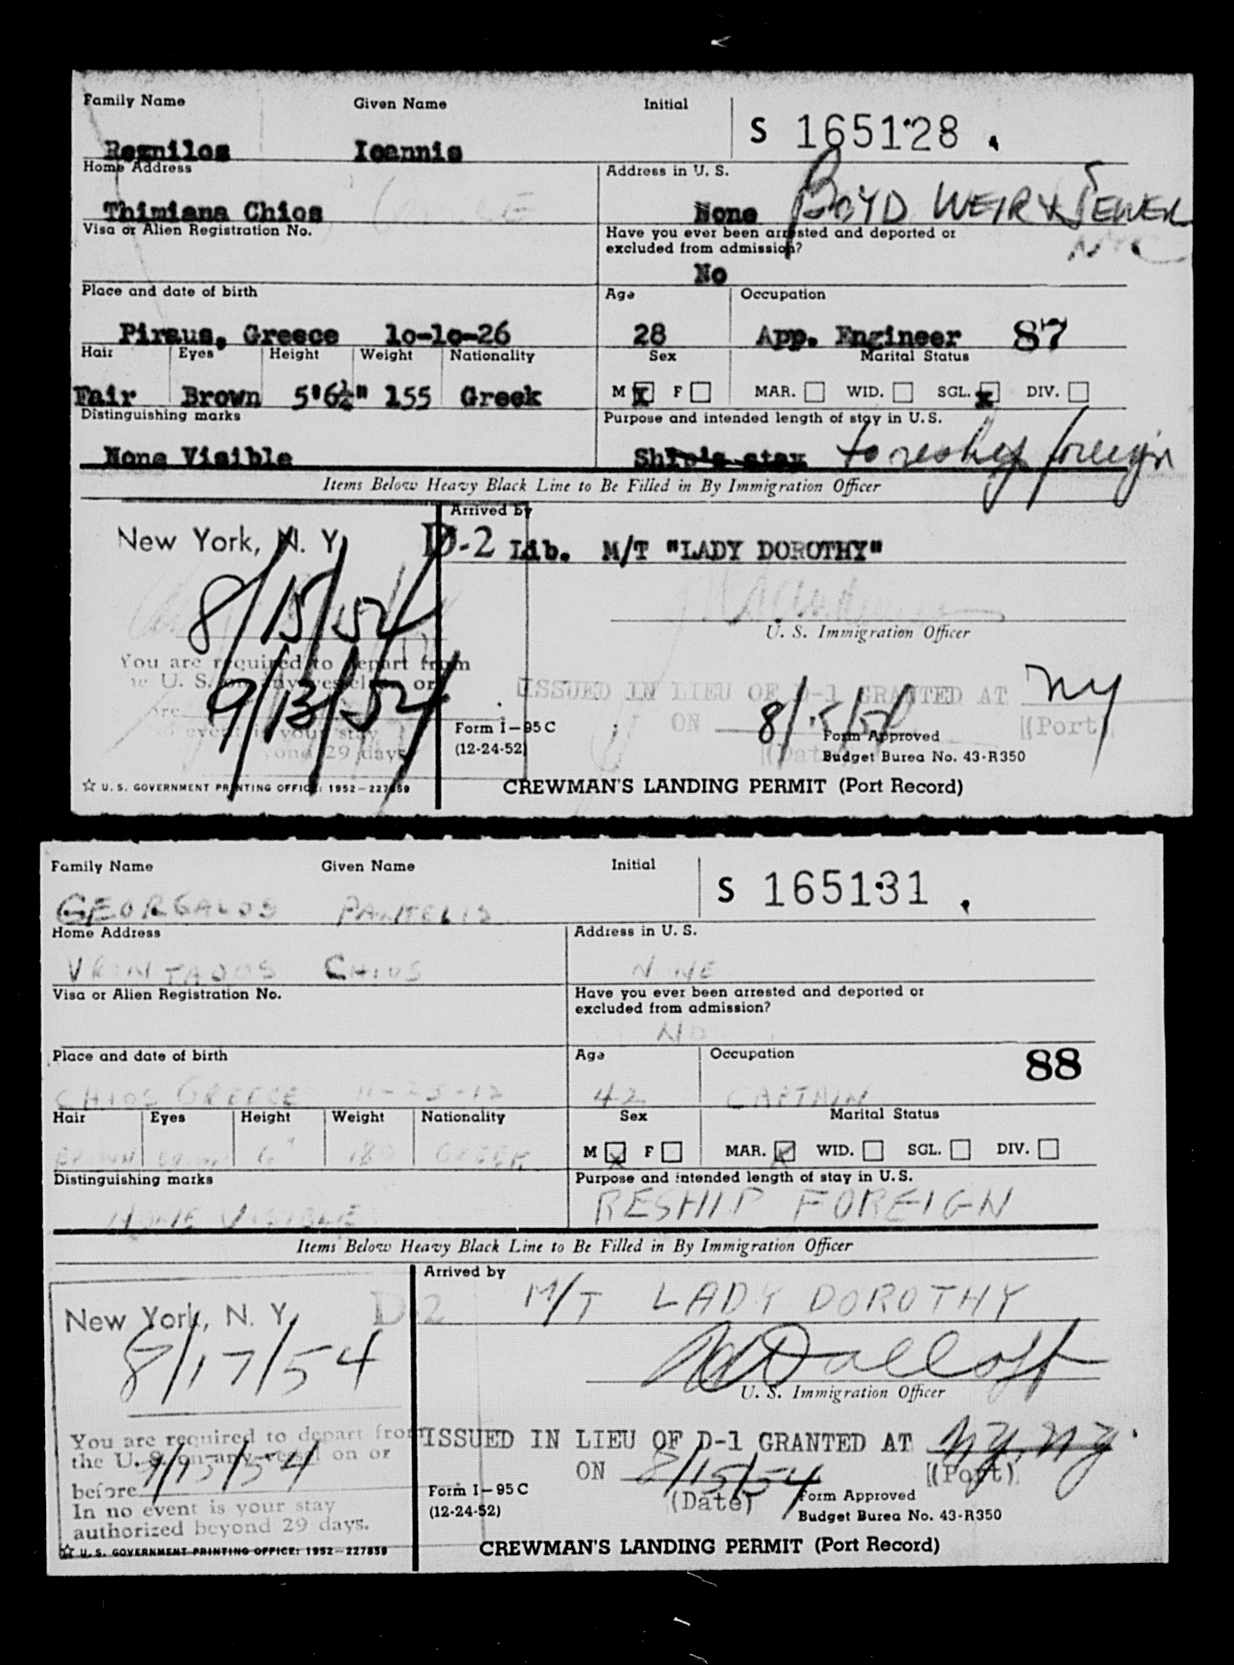 Family Name Given Name Initial
S 165128
Ioannis
Home Address Address in U. S.
Thimiana Chios None BOYD WEIR & SEWELL
NYC
Visa or Alien Registration No. Have you ever been arrested and deported or
excluded from admission?
No
Place and date of birth Age Occupation
Piraus, Greece 10-10-26 28 App. Engineer 87
Hair Eyes Height Weight Nationality Sex Marital Status
Fair Brown 5'6½" 155 Greek M X F MAR. WID. SGL. X DIV.
Distinguishing marks Purpose and intended length of stay in U. S.
None Visible Ship's stay to reship foreign
Items Below Heavy Black Line to Be Filled in By Immigration Officer
Arrived by
New York, N. Y. D-2 Lib. M/T "LADY DOROTHY"
8/15/54
U. S. Immigration Officer
You are required to depart from
the U. S. on any vessel on or
9/13/54
ISSUED IN LIEU OF D-1 GRANTED AT NY
ON 8/15/54 (Port)
(Date)
Form I-95 C Form Approved
(12-24-52) Budget Burea No. 43-R350
☆ U. S. GOVERNMENT PRINTING OFFICE: 1952-227859 CREWMAN'S LANDING PERMIT (Port Record)
Family Name Given Name Initial
S 165131
GEORGALOS PANTELIS
Home Address Address in U. S.
VRONTADOS CHIOS NONE
Visa or Alien Registration No. Have you ever been arrested and deported or
excluded from admission?
NO
Place and date of birth Age Occupation
88
CHIOS GREECE 11-25-12 42 CAPTAIN
Hair Eyes Height Weight Nationality Sex Marital Status
BROWN BROWN 6" 180 GREEK M X F MAR. X WID. SGL. DIV.
Distinguishing marks Purpose and intended length of stay in U. S.
NONE VISIBLE RESHIP FOREIGN
Items Below Heavy Black Line to Be Filled in By Immigration Officer
Arrived by
M/T LADY DOROTHY
New York, N. Y. D-2
8/17/54
U. S. Immigration Officer
You are required to depart from
the U. S. on any vessel on or
before 9/13/54
In no event is your stay
authorized beyond 29 days.
ISSUED IN LIEU OF D-1 GRANTED AT NY NY
ON 8/15/54 (Port)
(Date)
Form I-95 C Form Approved
(12-24-52) Budget Burea No. 43-R350
☆ U. S. GOVERNMENT PRINTING OFFICE: 1952-227859 CREWMAN'S LANDING PERMIT (Port Record)